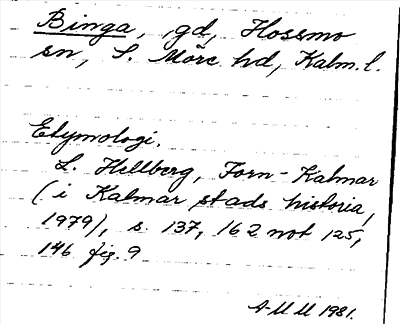 Binga, gd, Hossmo
sn, S. Möre hd, Kalm. l.
Etymologi.
L. Hellberg, Forn-Kalmar
(i Kalmar stads historia,
1979), s. 137, 162 not 125,
146 fig. 9
A-M M 1981.